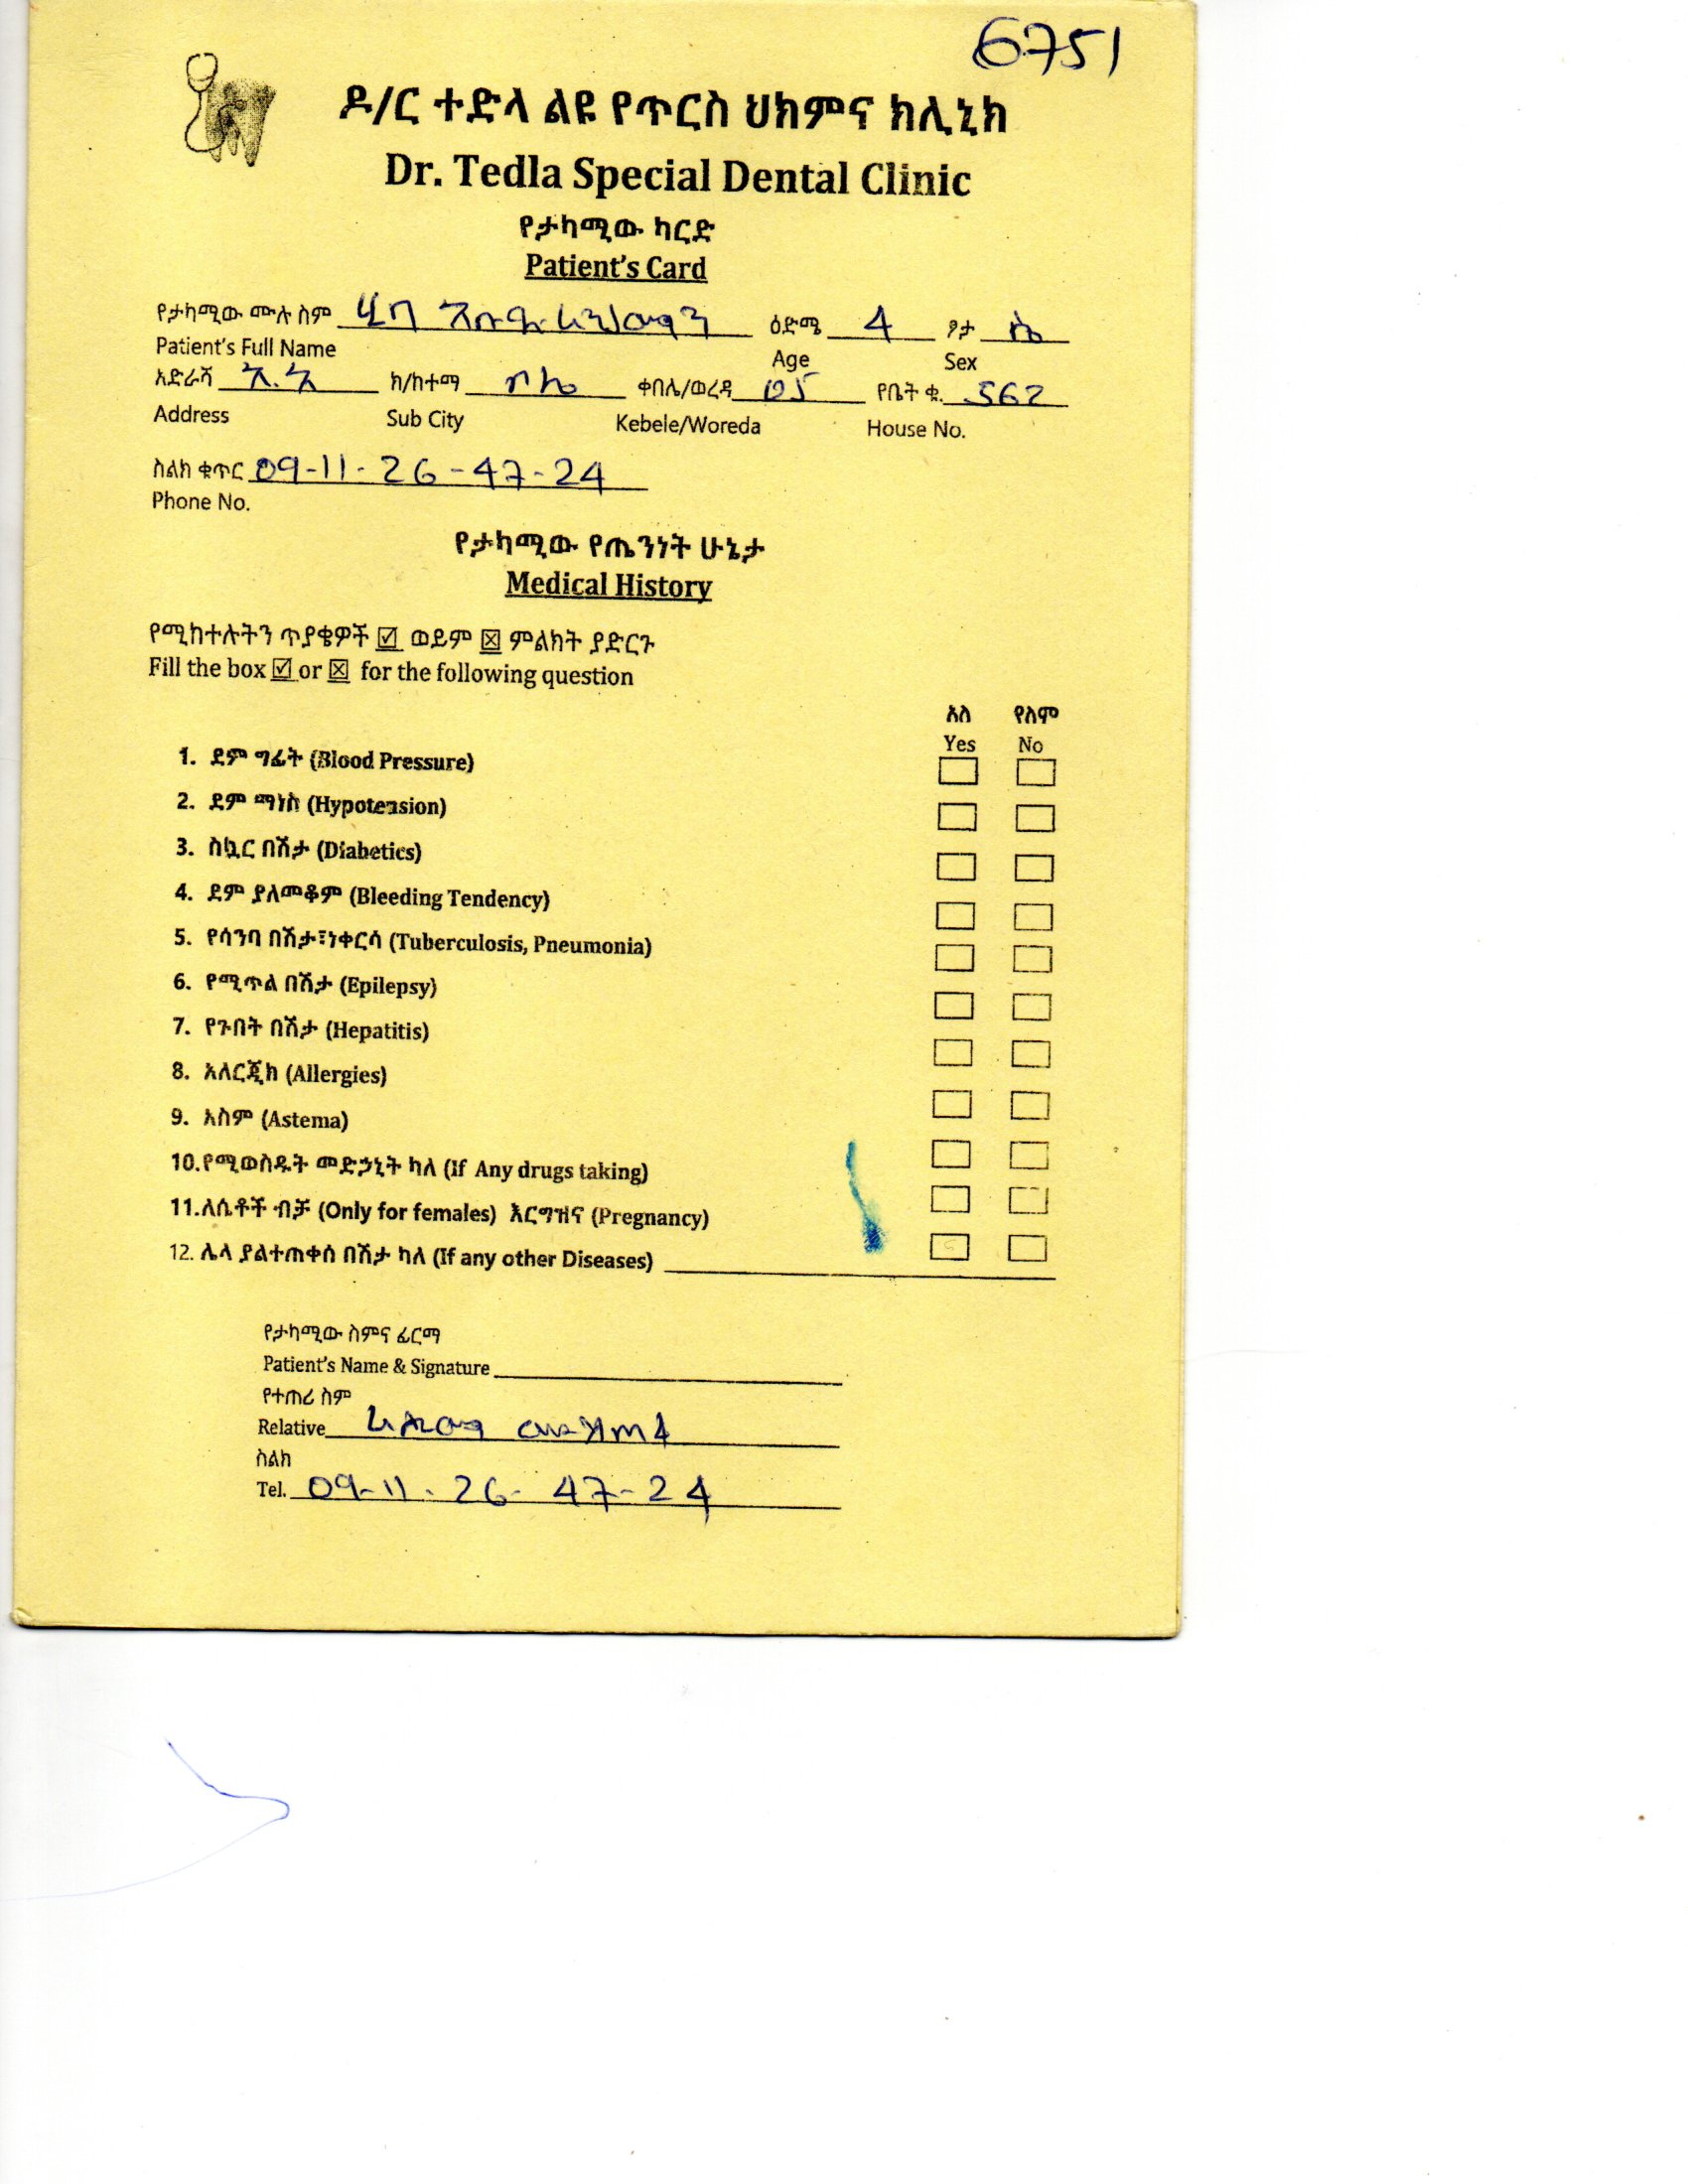 6751
ዶ/ር ተድላ ልዩ የጥርስ ህክምና ክሊኒክ
Dr. Tedla Special Dental Clinic
የታካሚው ካርድ
Patient's Card
የታካሚው ሙሉ ስም ሂባ ዕድሜ 4 ፆታ ሴ
Patient's Full Name Age Sex
አድራሻ አ.አ ክ/ከተማ ቦሌ ቀበሌ/ወረዳ 05 የቤት ቁ. 562
Address Sub City Kebele/Woreda House No.
ስልክ ቁጥር 09-11-26-47-24
Phone No.
የታካሚው የጤንነት ሁኔታ
Medical History
የሚከተሉትን ጥያቄዎች ☑ ወይም ☒ ምልክት ያድርጉ
Fill the box ☑ or ☒ for the following question
አለ የለም
Yes No
1. ደም ግፊት (Blood Pressure)
2. ደም ማነስ (Hypotension)
3. ስኳር በሽታ (Diabetics)
4. ደም ያለመቆም (Bleeding Tendency)
5. የሳንባ በሽታ፣ነቀርሳ (Tuberculosis, Pneumonia)
6. የሚጥል በሽታ (Epilepsy)
7. የጉበት በሽታ (Hepatitis)
8. አለርጂክ (Allergies)
9. አስም (Astema)
10.የሚወስዱት መድኃኒት ካለ (If Any drugs taking)
11.ለሴቶች ብቻ (Only for females) እርግዝና (Pregnancy)
12. ሌላ ያልተጠቀሰ በሽታ ካለ (If any other Diseases)
የታካሚው ስምና ፊርማ
Patient's Name & Signature
የተጠሪ ስም
Relative
ስልክ
Tel. 09-11-26-47-24